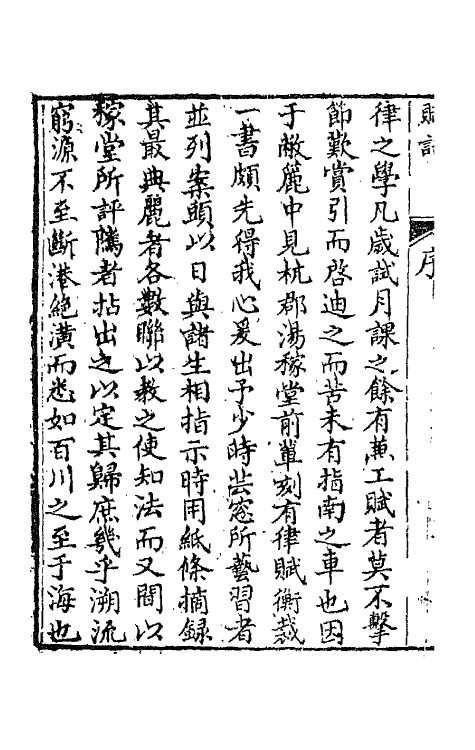 律之學凡歲試月課之餘有兼工賦者莫不擊
節歎賞引而啓迪之而苦未有指南之車也因
于敝簏中見杭郡湯稼堂前軰刻有律賦衡裁
一書頗先得我心爰出予少時芸窓所藝習者
並列案頭以日與諸生相指示時用紙條摘録
其最典麗者各數聯以教之使知法而又間以
稼堂所評隲者拈出之以定其歸庶幾乎溯流
窮源不至斷港絶潢而悉如百川之至于海也
序